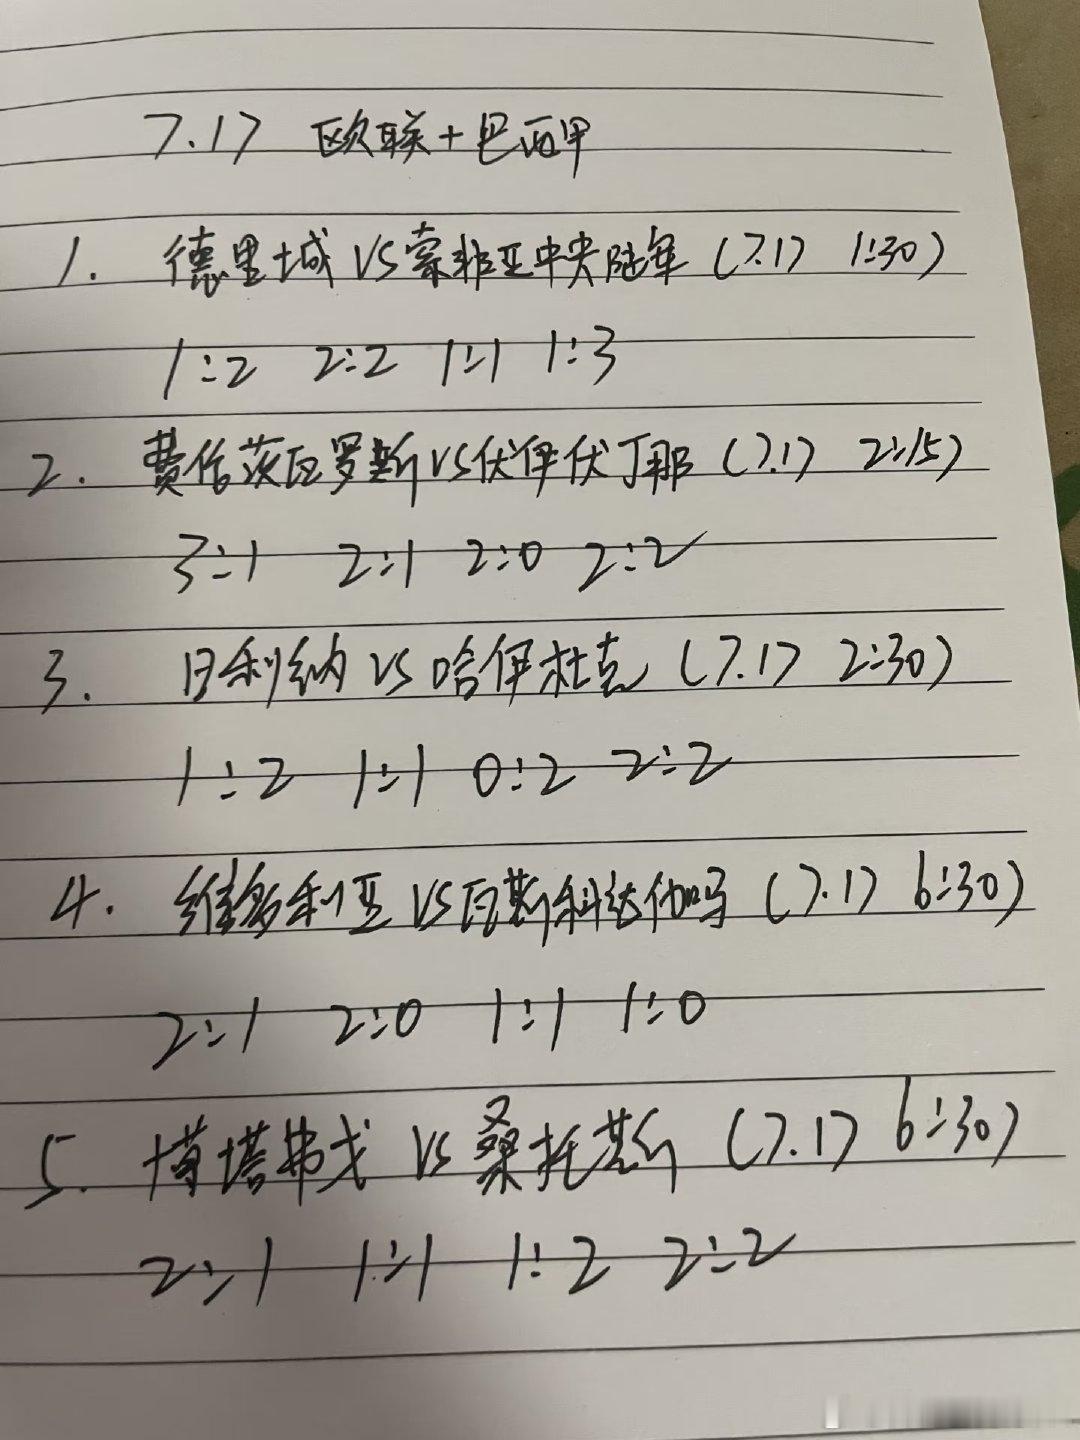 7.17 欧联+巴西甲
1. 德里城 VS 索菲亚中央陆军 (7.17 1:30)
1:2 2:2 1:1 1:3
2. 费伦茨瓦罗斯 VS 伏伊伏丁那 (7.17 2:15)
3:1 2:1 2:0 2:2
3. 日利纳 VS 哈伊杜克 (7.17 2:30)
1:2 1:1 0:2 2:2
4. 维多利亚 VS 瓦斯科达伽马 (7.17 6:30)
2:1 2:0 1:1 1:0
5. 博塔弗戈 VS 桑托斯 (7.17 6:30)
2:1 1:1 1:2 2:2